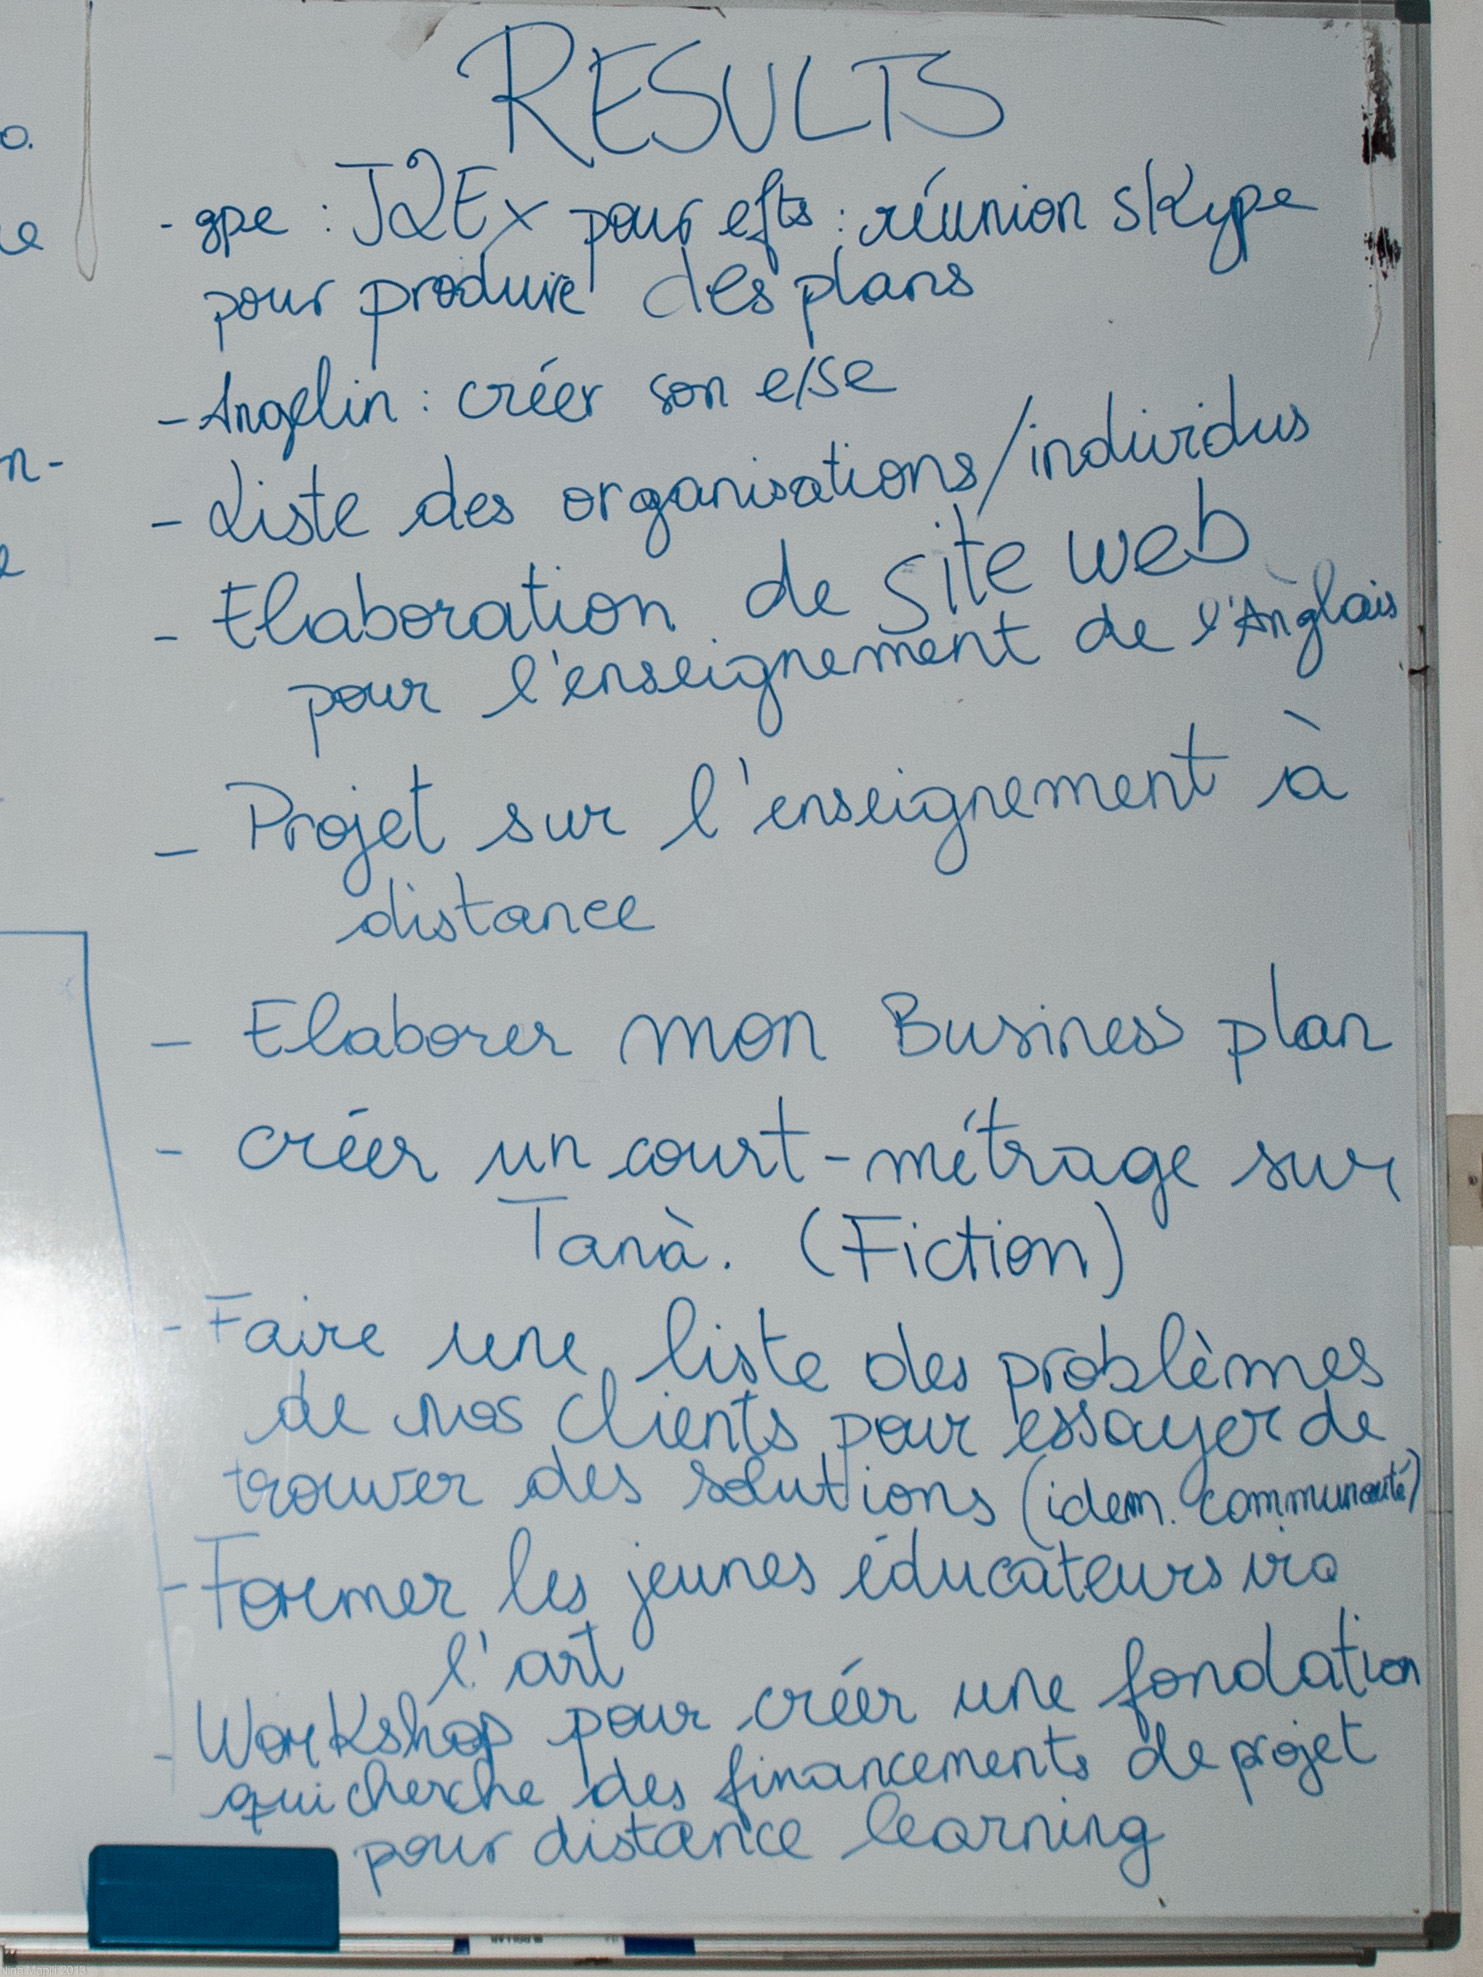 RESULTS
- gpe : J2Ex pour efts : réunion skype
pour produire des plans
- Angelin : créer son e/se
- Liste des organisations/individus
- Elaboration de site web
pour l'enseignement de l'Anglais
- Projet sur l'enseignement à
distance
- Elaborer mon Business plan
- créer un court-métrage sur
Tanà. (Fiction)
- Faire une liste des problèmes
de nos clients pour essayer de
trouver des solutions (idem. communauté)
- Former les jeunes éducateurs via
l'art
- Workshop pour créer une fondation
qui cherche des financements de projet
pour distance learning